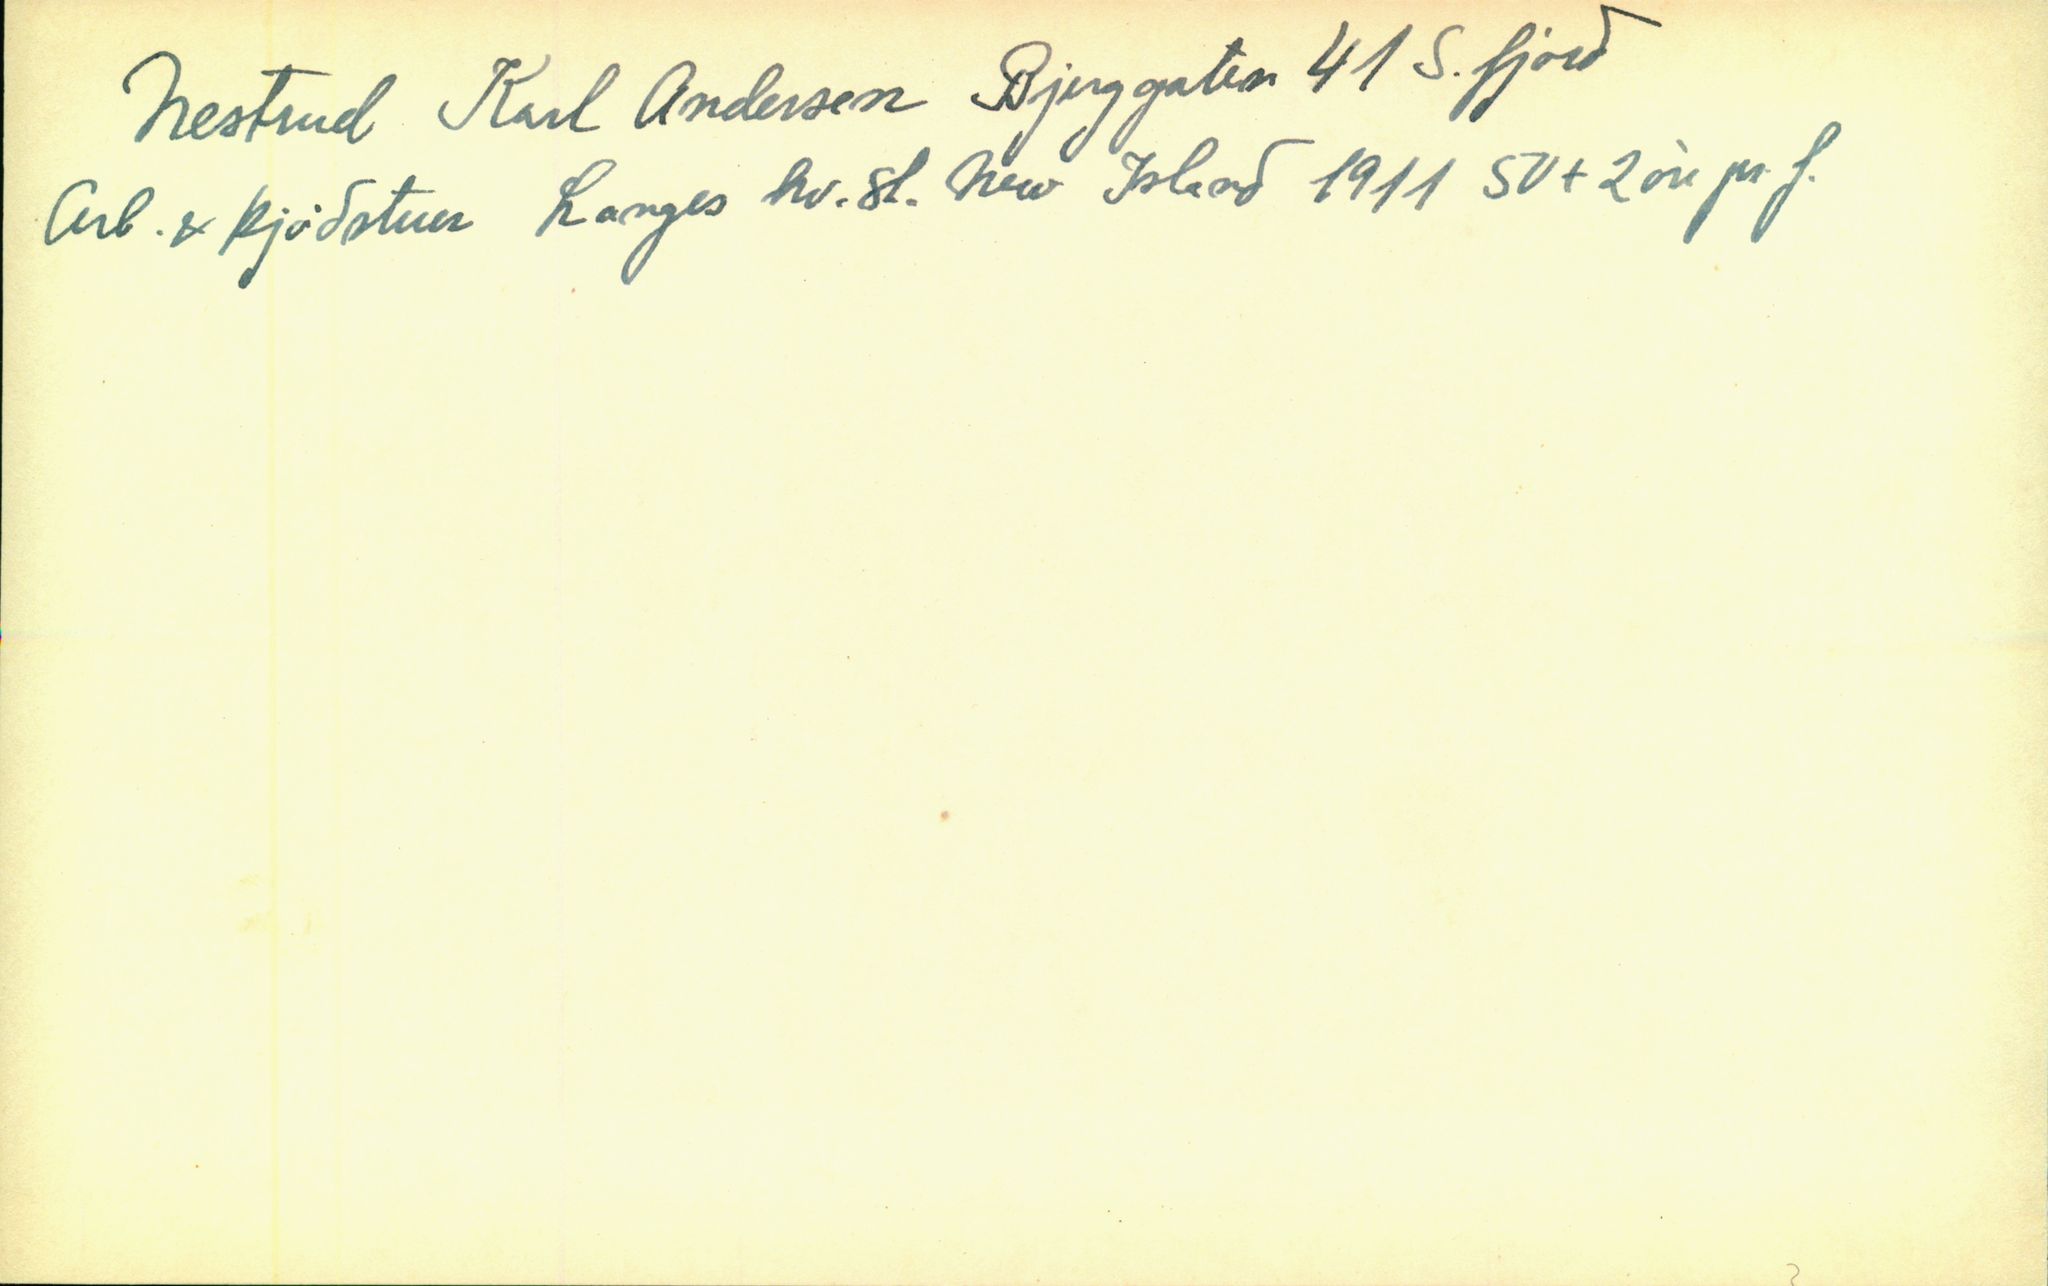 Nestrud Karl Andersen Bjerggaten 41 S.fjord
Arb. & kjödstuer Langes hv. st. New Island 1911 50 + 2 öre pr. f.